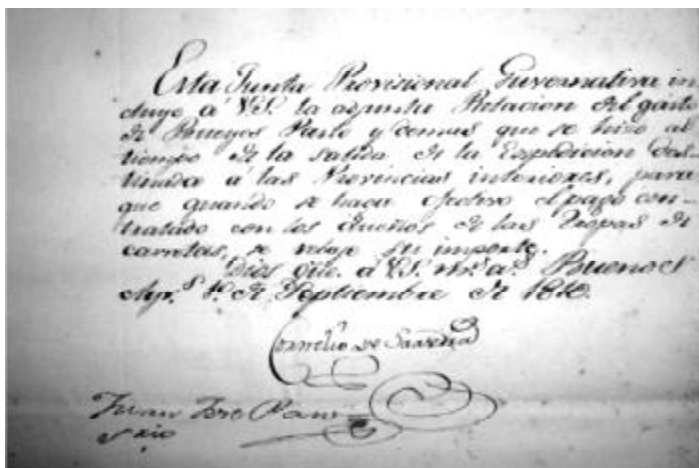 Esta Junta Provisional Guvernativa in
cluye á V.S. la adjunta Relacion del gasto
de Bueyes Pasto y demas que se hizo al
tiempo de la salida de la Expedicion des
tinada á las Provincias interiores, para
que quando se haga efectivo el pago con-
tratado con los dueños de las Tropas de
carretas, se rebaje su importe.
Dios gũe. á V.S. m.s a.s Buenos
Ayr.s 1.o de Septiembre de 1810.
Cornelio de Saavedra
Juan Jose Paso
S rio